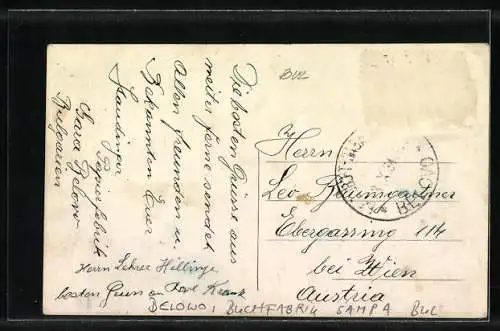 Die besten Grüsse aus
weiter ferne sendet
Allen freunden u.
Bekannten Euer
Staudinger
Papierfabrik
Gara Belovo
Bulgarien
Herrn Lehrer Hillinge
besten Gruss an Karl Krank
BUL
Herrn
Leo Baumgartner
Ebergassing 114
bei Wien
Austria
BELOWO, BUCHFABRIK SAMPA BUL